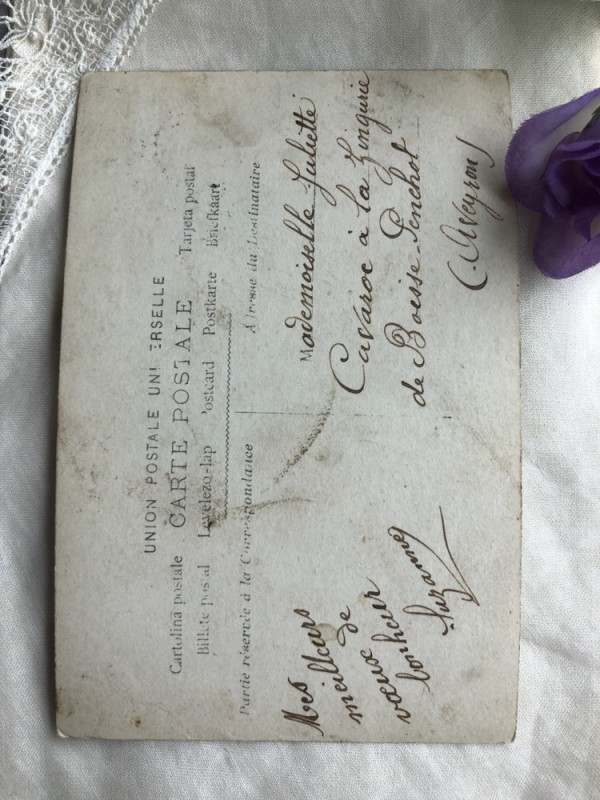 UNION POSTALE UNIVERSELLE
CARTE POSTALE
Cartolina postale Levelezo-lap Postcard Postkarte Tarjeta postal
Billete postal Briefkaart
Partie réservée à la Correspondance
Adresse du Destinataire
Mes
meilleurs
vœux de
bonheur
Suzanne
Mademoiselle Juliette
Cavaroc à la Zinguerie
de Boisse-Penchot
(Aveyron)